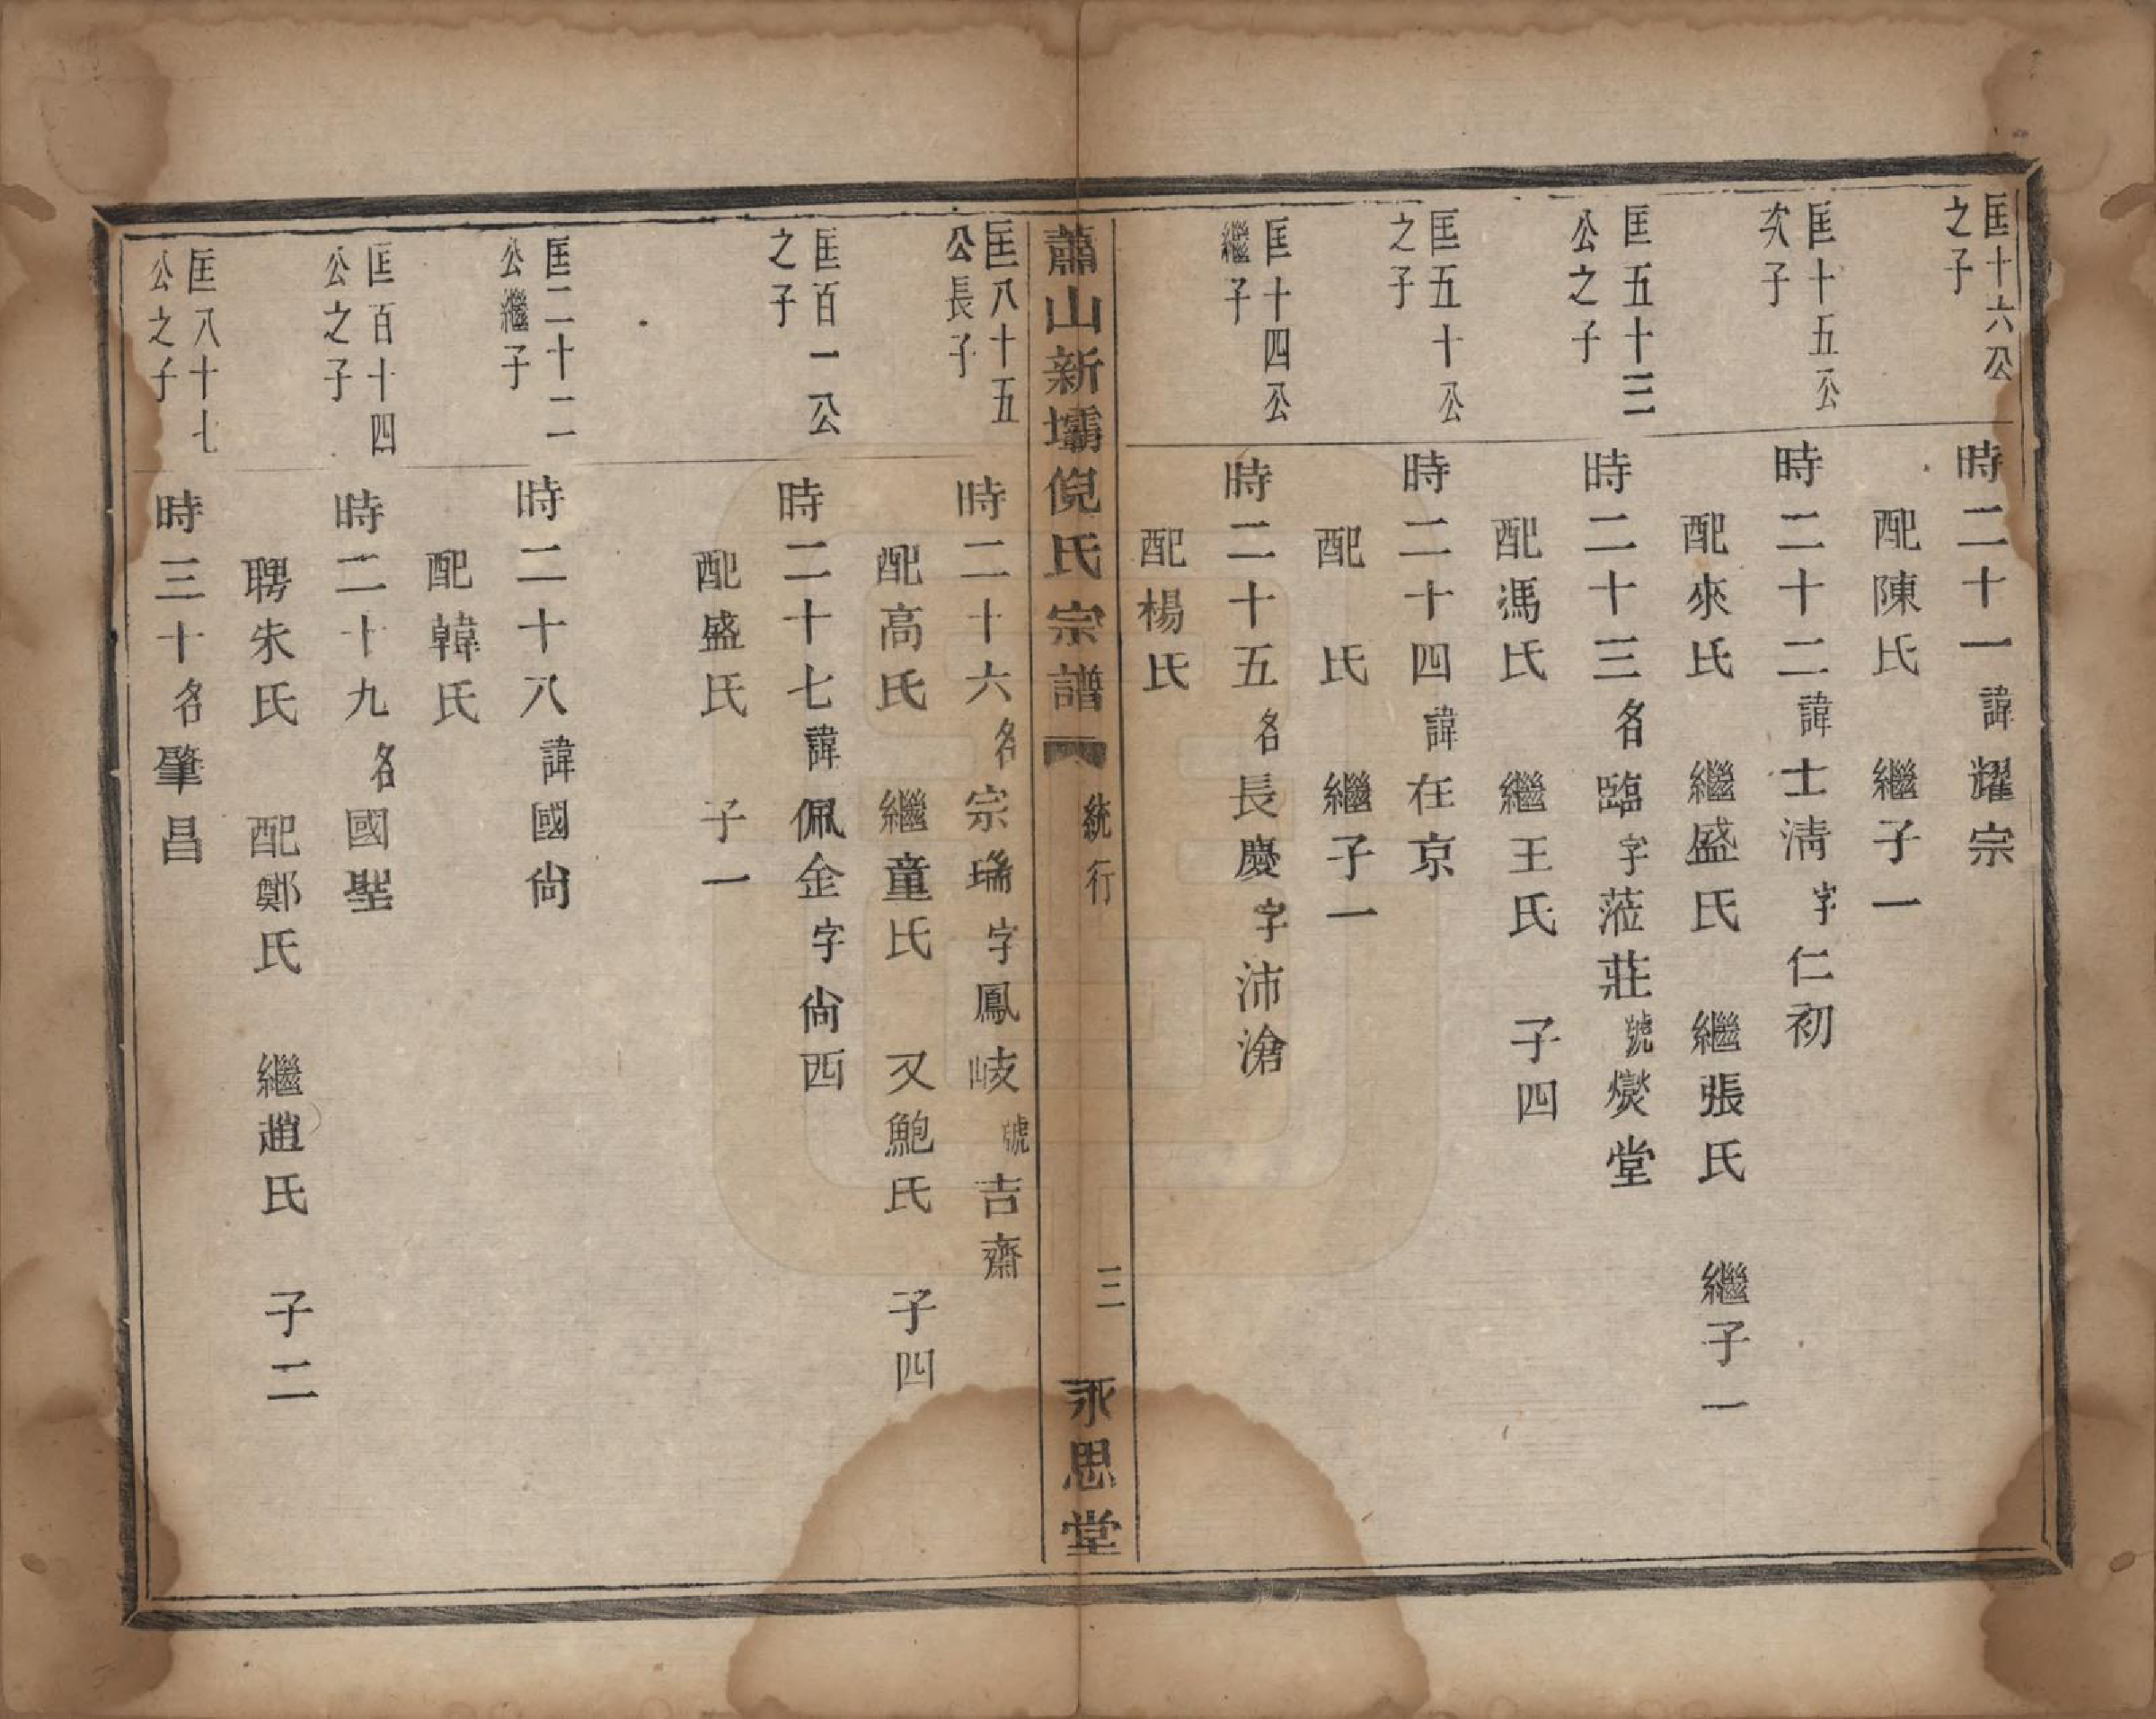 匡十六公
之子
時二十一諱耀宗
配陳氏　繼子一
匡十五公
次子
時二十二諱士淸字仁初
配來氏　繼盛氏　繼張氏　繼子一
匡五十三
公之子
時二十三名臨字蒞莊號燮堂
配馮氏　繼王氏　子四
匡五十公
之子
時二十四諱在京
配　氏　繼子一
匡十四公
繼子
時二十五名長慶字沛滄
配楊氏
蕭山新壩倪氏宗譜　統行　三　永思堂
匡八十五
公長子
時二十六名宗瑞字鳳岐號吉齋
配高氏　繼童氏　又鮑氏　子四
匡百一公
之子
時二十七諱佩金字尙西
配盛氏　子一
匡二十二
公繼子
時二十八諱國尙
配韓氏
匡百十四
公之子
時二十九名國聖
聘朱氏　配鄭氏　繼趙氏　子二
匡八十七
公之子
時三十名肇昌